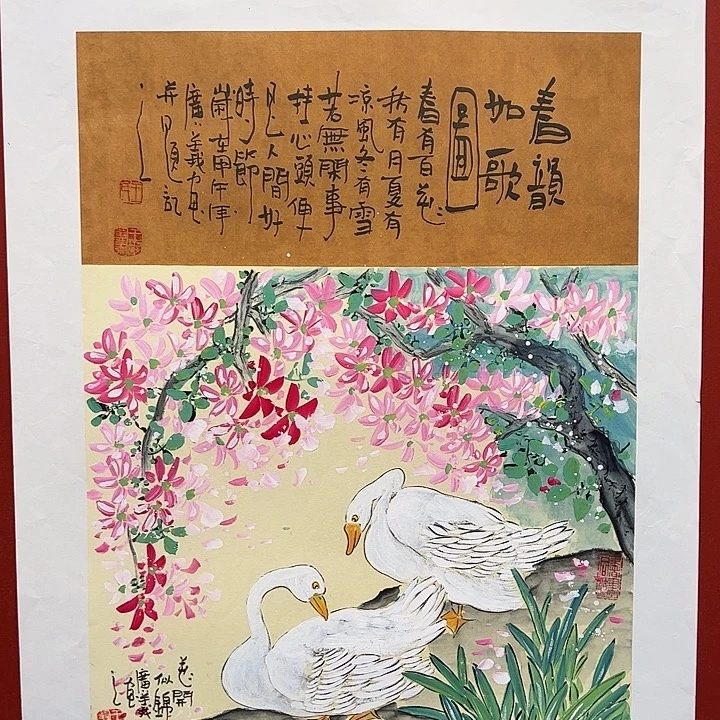 春韻
如歌
圖
春有百花
秋有月夏有
涼風冬有雪
若無閑事
挂心頭便
是人間好
時節
歲在甲午年
廣義
并題記
花開
似錦
廣義